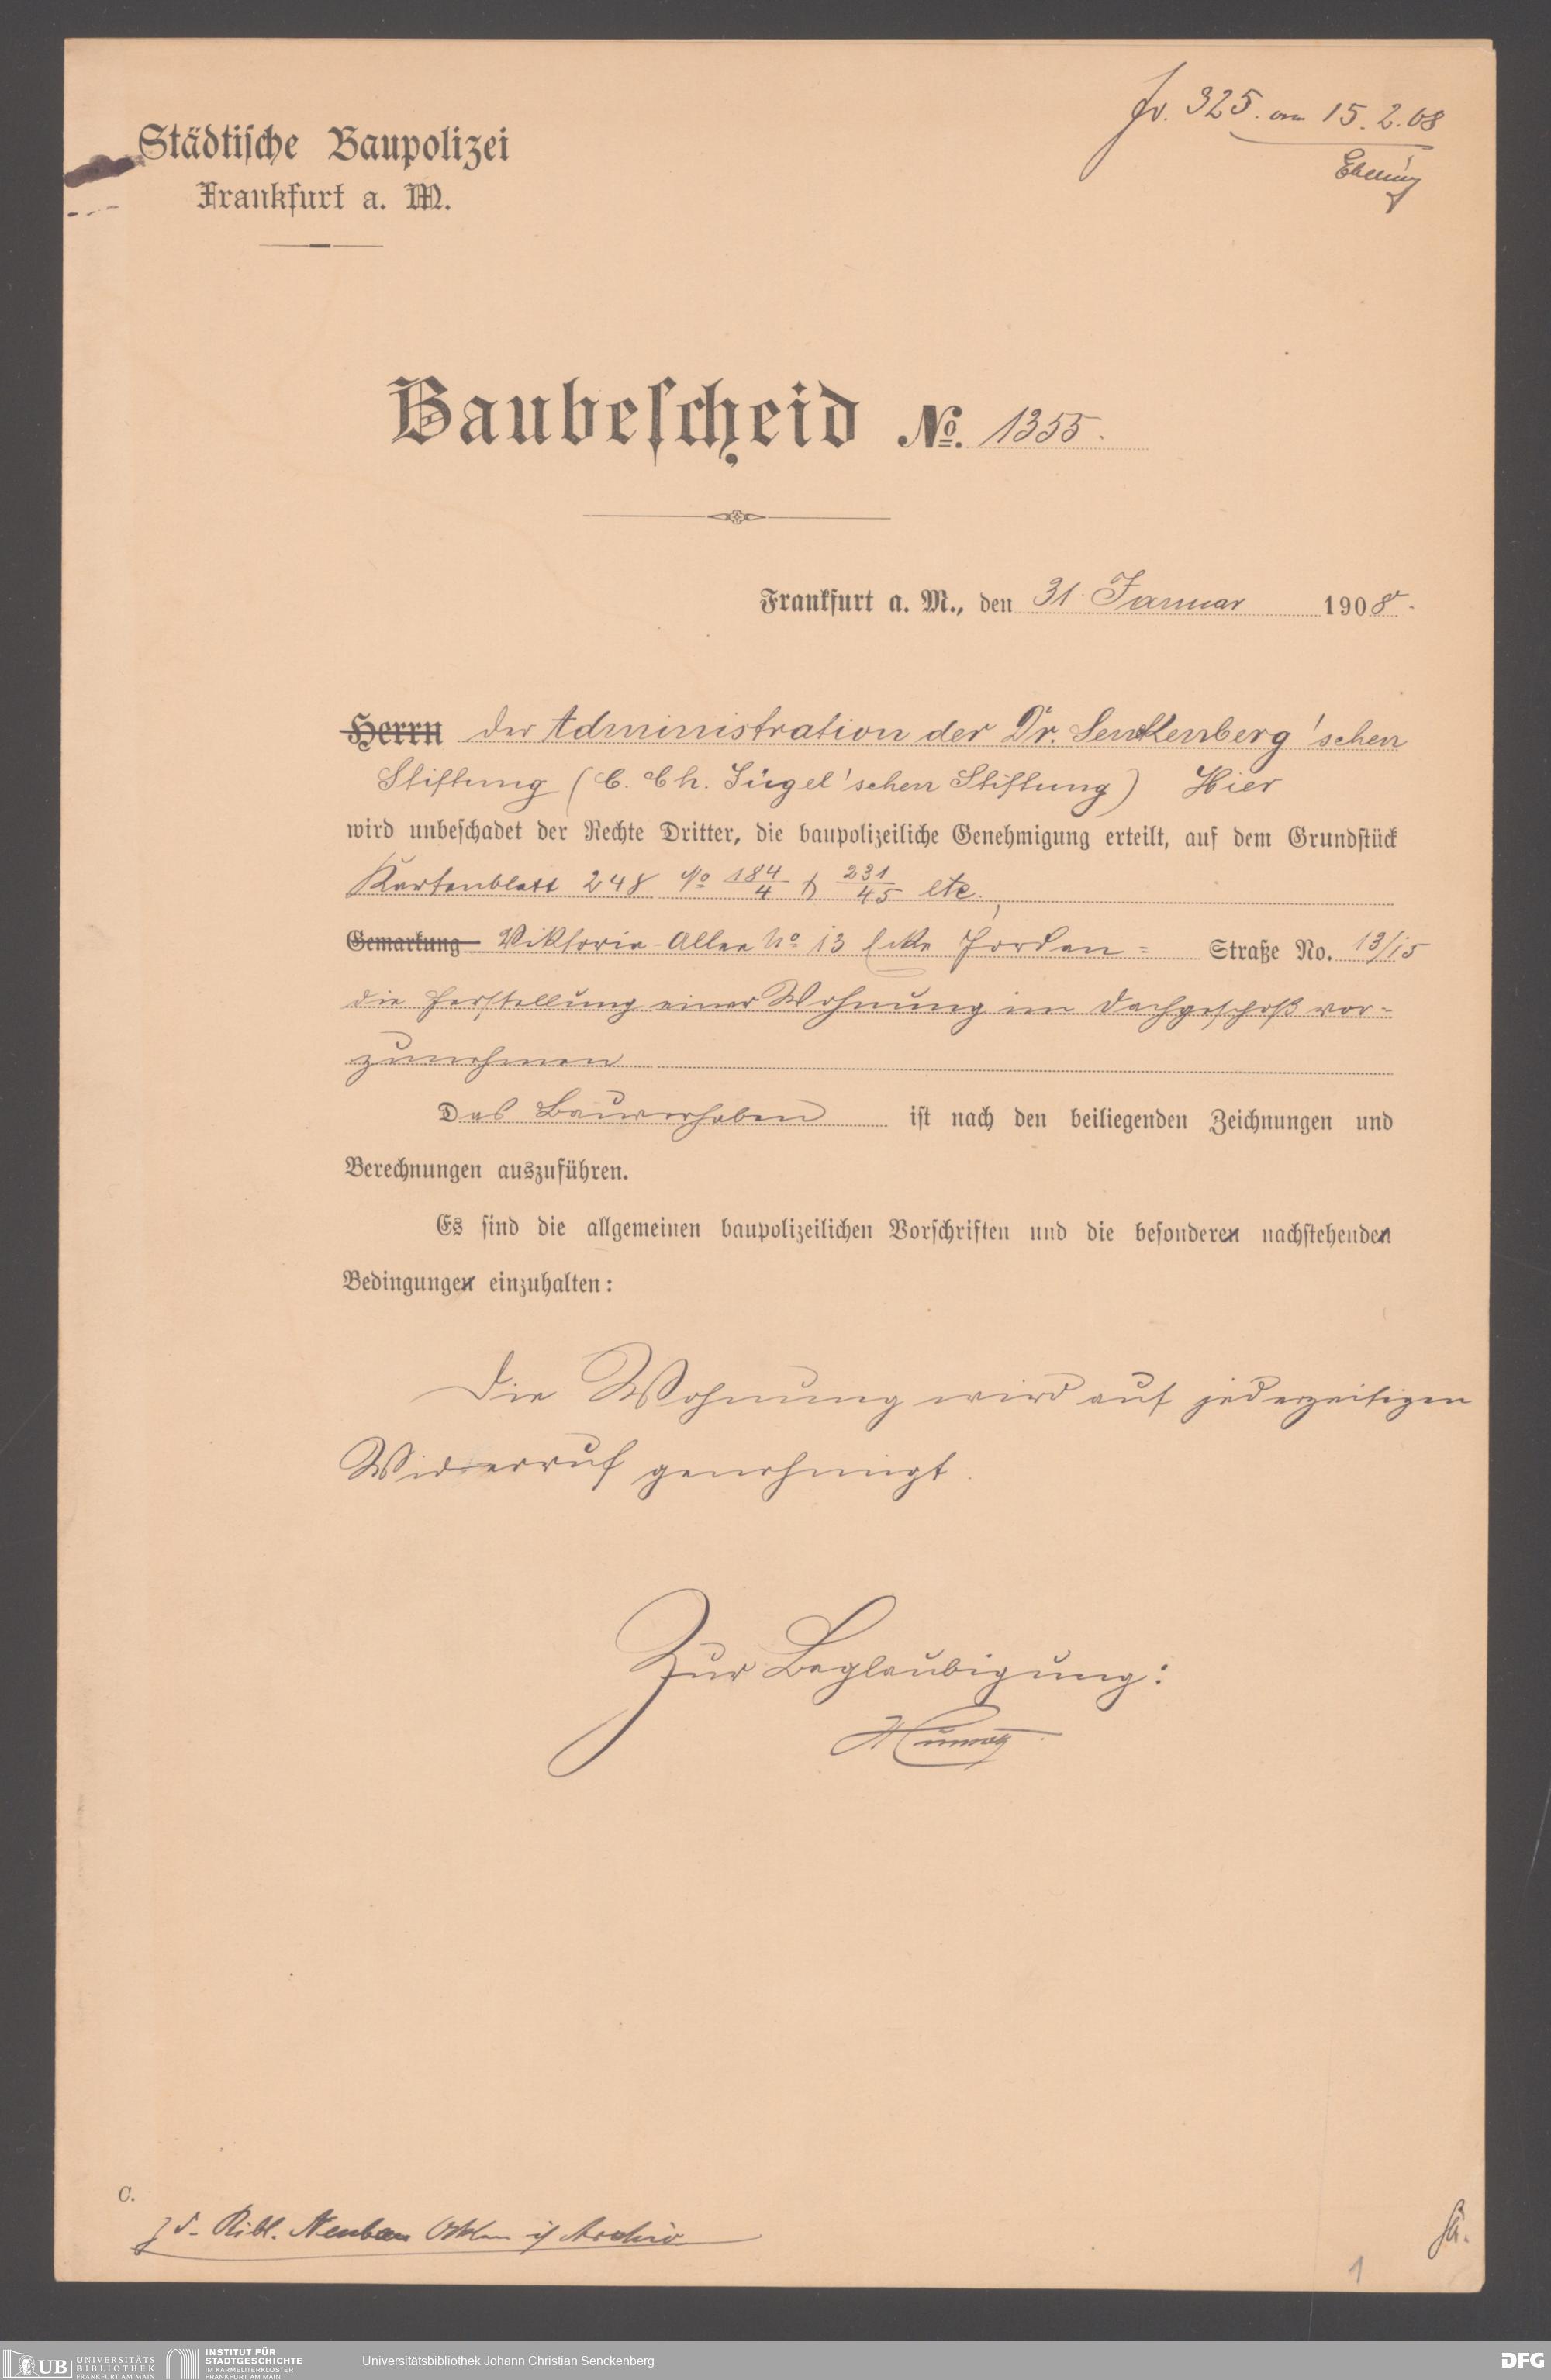 Städtische Baupolizei
Frankfurt a. M.
Jr. 325. om 15.2.08
Baubescheid No. 1355.
Frankfurt a. M., den 31 Januar 1908.
Herrn der Administration der Dr. Senkenberg'schen
Stiftung (C. Ch. Jügel'schen Stiftung) Hier
wird unbeschadet der Rechte Dritter, die baupolizeiliche Genehmigung erteilt, auf dem Grundstück
Kartenblatt 248 No 184/4 & 231/45 etc.,
Gemarkung Viktoria-Allee No 13 Ecke Jordan= Straße No. 13/15
die Herstellung einer Wohnung im Dachgeschoß vor=
zunehmen
Das Bauvorhaben ist nach den beiliegenden Zeichnungen und
Berechnungen auszuführen.
Es sind die allgemeinen baupolizeilichen Vorschriften und die besonderen nachstehenden
Bedingungen einzuhalten:
Die Wohnung wird auf jederzeitigen
Widerruf genehmigt.
Zur Beglaubigung:
C.
z d. Bibl. Neubau Akten if Archiv
1
UB UNIVERSITÄTS
BIBLIOTHEK
FRANKFURT AM MAIN
INSTITUT FÜR
STADTGESCHICHTE
IM KARMELITERKLOSTER
FRANKFURT AM MAIN
Universitätsbibliothek Johann Christian Senckenberg
DFG